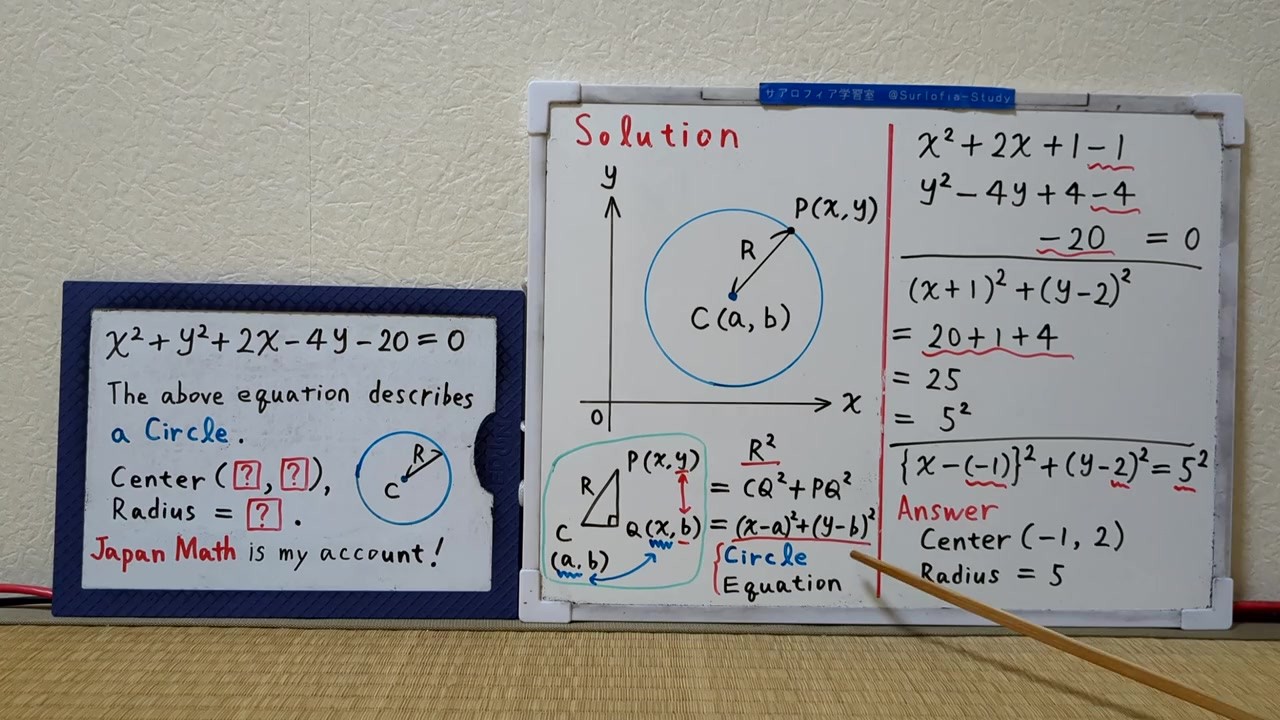 x² + y² + 2x - 4y - 20 = 0
The above equation describes
a Circle.
Center (?, ?),
Radius = ?.
R
C
Japan Math is my account!
サアロフィア学習室 @Surlofia-Study
Solution
y
P(x, y)
R
C(a, b)
0
x
P(x, y)
R
C
(a, b)
Q(x, b)
R²
= CQ² + PQ²
= (x-a)² + (y-b)²
Circle
Equation
x² + 2x + 1 - 1
y² - 4y + 4 - 4
- 20 = 0
(x+1)² + (y-2)²
= 20 + 1 + 4
= 25
= 5²
{x - (-1)}² + (y-2)² = 5²
Answer
Center (-1, 2)
Radius = 5